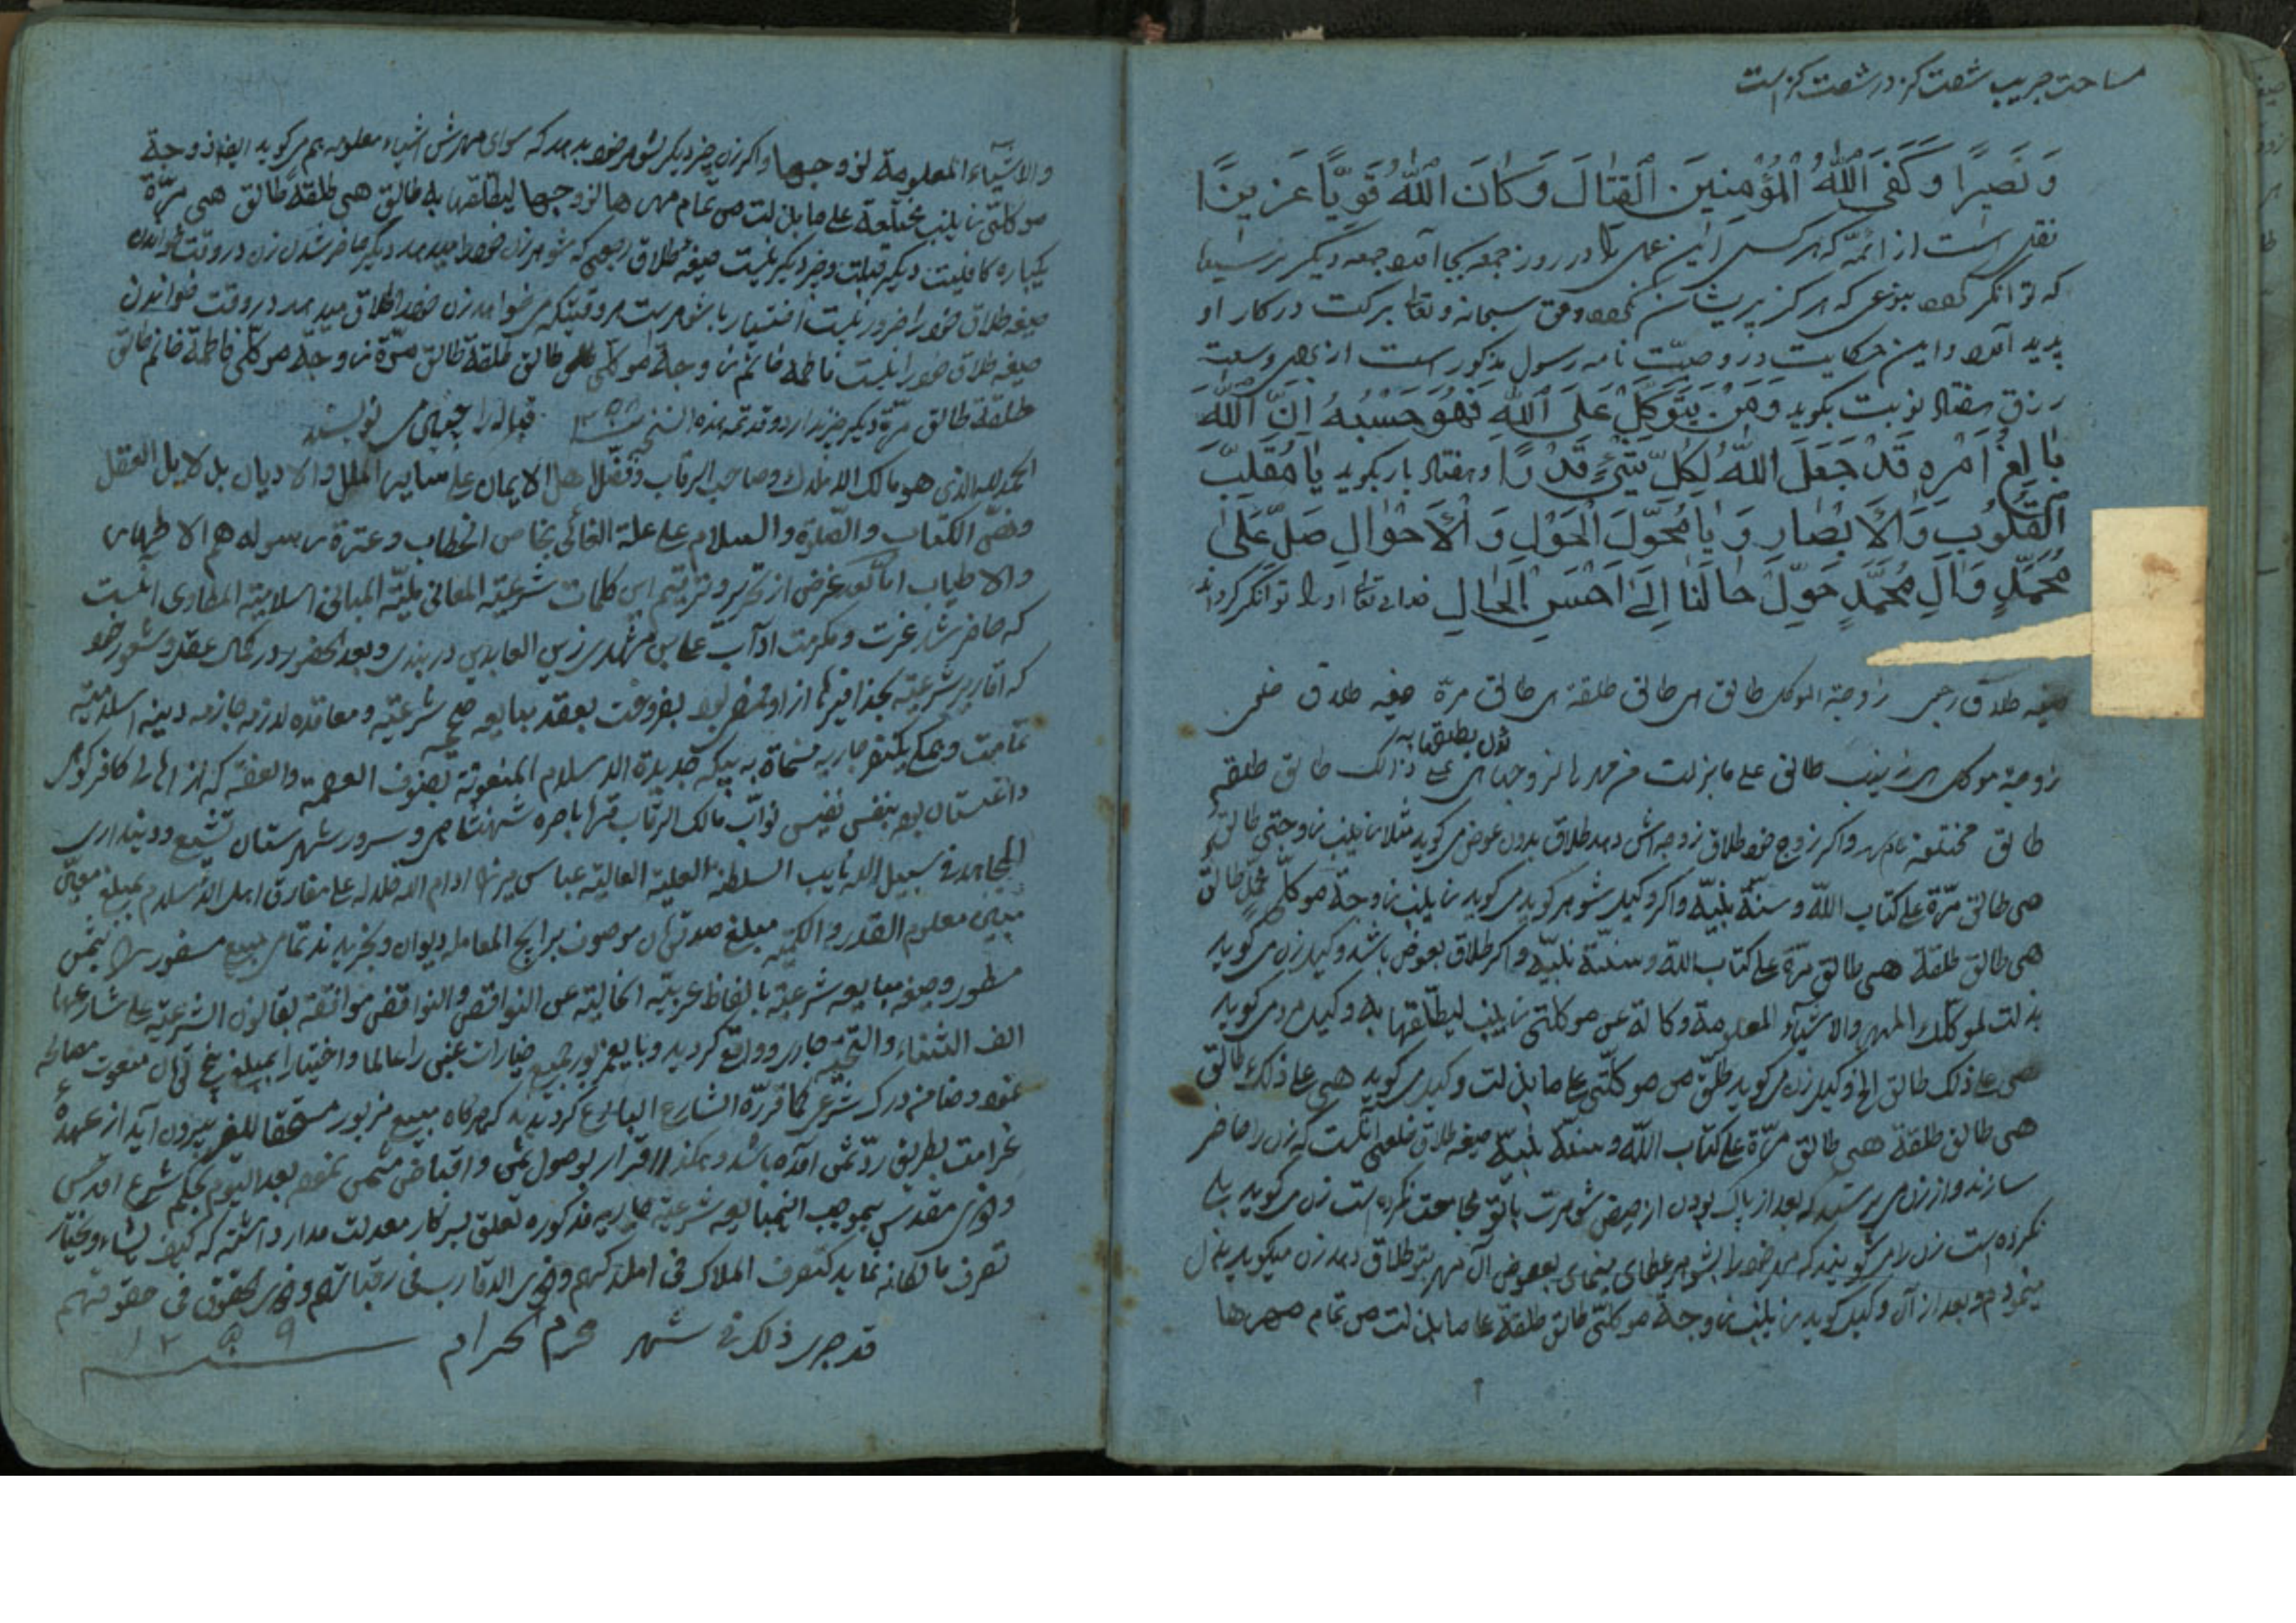 مساحت جریب شصت گز در شصت گز است
وَ نَصِیرًا وَ کَفَی اللهُ الْمُؤْمِنِینَ الْقِتَالَ وَ کَانَ اللهُ قَوِیًّا عَزِیزًا
نقل است از ائمّه که هر کس این عمل را در روز جمعه بجا آورد جمعه دیگر نرسیده
که توانگر شود بنوعی که هرگز پریشان نشود و حق سبحانه و تعالی برکت در کار او
پدید آورد و این حکایت در وصیّت نامه رسول مذکور است از برای وسعت
رزق هفتاد نوبت بگوید وَ مَنْ یَتَوَکَّلْ عَلَی اللهِ فَهُوَ حَسْبُهُ اِنَّ اللهَ
بَالِغُ اَمْرِهِ قَدْ جَعَلَ اللهُ لِکُلِّ شَیْءٍ قَدْرًا و هفتاد بار بگوید یَا مُقَلِّبَ
الْقُلُوبِ وَالْاَبْصَارِ وَ یَا مُحَوِّلَ الْحَوْلِ وَ الْاَحْوَالِ صَلِّ عَلَی
مُحَمَّدٍ وَ آلِ مُحَمَّدٍ حَوِّلْ حَالَنَا اِلَی اَحْسَنِ الْحَالِ خدای تعالی او را توانگر گرداند
صیغه طلاق رجعی زوجة الموکل طالق هی طالق طلقة هی طالق مرّة صیغه طلاق خلعی
زوجة موکلی زینب طالق علی ما بذلت من مهرها لزوجها هی علی ذلک طالق طلقه
لیطلقها به
طالق مختلعه و اگر زوج خود طلاق زوجه‌اش دهد طلاق بدون عوض می‌گوید مثلا زینب زوجتی طالق
هی طالق مرّة علی کتاب الله و سنّة نبیّه و اگر وکیل شوهر گوید می‌گوید زینب زوجة موکلی طالق
هی طالق طلقة هی طالق مرّة علی کتاب الله و سنّة نبیّه و اگر طلاق بعوض باشد وکیل زن می‌گوید
بذلت لموکلک المهر والاشیآء المعلومة وکالة عن موکلتی زینب لیطلّقها به وکیل مرد می‌گوید
هی علی ذلک طالق وکیل زن می‌گوید طلّق من موکلّتی علی ما بذلت وکیل می‌گوید هی علی ذلک طالق
هی طالق طلقة هی طالق مرّة علی کتاب الله و سنّة نبیّه صیغه طلاق خلعی آنست که زن را حاضر
سازند و از زن می‌پرسند که بعد از پاک بودن از حیض شوهرت با تو مجامعت نکرده است زن می‌گوید بلی
نکرده است زن را می‌گویند که مهر خود را بشوهر عطای مینمای بعوض آن مهر بتو طلاق دهد زن میگوید بذل
مینمودم و بعد از آن وکیل گوید زینب زوجة موکلتی طالق طلقة علی ما بذلت من تمام مهرها
والاشیآء المعلومة لزوجها و اگر زن چیز دیگر بشوهر خود بدهد که سوای مهرش اشیاء معلومه هم می‌گوید ایضا زوجة
موکلتی زینب مختلعة علی ما بذلت من تمام مهرها لزوجها لیطلّقها به طالق هی طلقة طالق هی مرّة
یکباره کافیست دیگر چیز دیگر نیست صیغه طلاق رجعی که شوهر زن خود را میدهد دیگر حاضر شدن زن در وقت خواندن
صیغه طلاق خود را ضرور نیست اختیار با شوهر است هر وقتیکه می‌خواهد زن خود را طلاق میدهد در وقت خواندن
صیغه طلاق خود را فاطمه خانم زوجة موکلی طالق طلقة طالق مرّة زوجة موکلی فاطمة خانم طالق
طلقة طالق مرّة دیگر چیز ندارد و قد تمه هذه النسخه ١٢٥٨ قباله را چنین می‌نویسند
الحمد لله الذی هو مالک الملوک و صاحب الرقاب و فضّل اهل الایمان علی سایر الملل والادیان
والصّلوة والسلام علی علة الغائی و عترة رسوله هم الاطهار
والاطیاب امّا بعد غرض از تحریر و ترقیم این کلمات شرعیّة المعانی ملیّة المبانی اسلامیّة المطاوی آنست
که حاضر شد عزّت و مکرمت آداب مشهدی زین العابدین دربندی و بعد الحضور در کمال عقل و شعور خود
که اقاریر شرعیّه بحذافیرها از او بفروخت بعقد مبایعه صحیحه شرعیّه و معاقده لازمه جازمه دینیه اسلامیّه
تمامت و همگی یکنفر جاریه مسماة به بیکه جدیدة الاسلام المنعوتة بصنوف العصمة والعفة که از
داغستان بود بنفس نفیس نوّاب مالک الرقاب شهنشاهی و سرور شهرستان تشیع و دینداری
المجاهد فی سبیل الله نایب السلطنة العلیة العالیّه عباس میرزا ادام الله ظلاله علی مفارق اهل الاسلام بمبلغ معیّن
مبیّن معلوم القدر و الکمیّه مبلغ صد تومان موصوف برایج المعامله دیوان و بخریدند تمامی مبیع مسفور را بثمن
مسطور و صیغه مبایعه شرعیّه بالفاظ عربیّه الخالیة عن النواقص والنواقض موافقة لقانون الشرعیّه علی شارعها
الف الثناء والتحیّه جاری و واقع گردید و بایع مزبور خیارات غبنی را عالما و اختیارا بمبلغ پنج تومان
نمود و ضامن درک شرعی کما قرّره الشارع گردید که هرگاه مبیع مزبور مستحقا للغیر بیرون آید از عهده
غرامت بطریق ردّ ثمن آمده باشد و هکذا اقرار بوصول ثمن و اقباض مثمن نمود بعد الیوم بحکم شرع اقدس
مقدس بموجب المبایعه شرعیّه جاریه مذکوره تعلق بسرکار معدلت مدار داشته که کیف یشاء و یختار
تصرف مالکانه نماید کتصرف الملاک فی املاکهم و ذوی الحقوق فی حقوقهم
قد جری ذلک فی شهر محرم الحرام ١٢٥٩